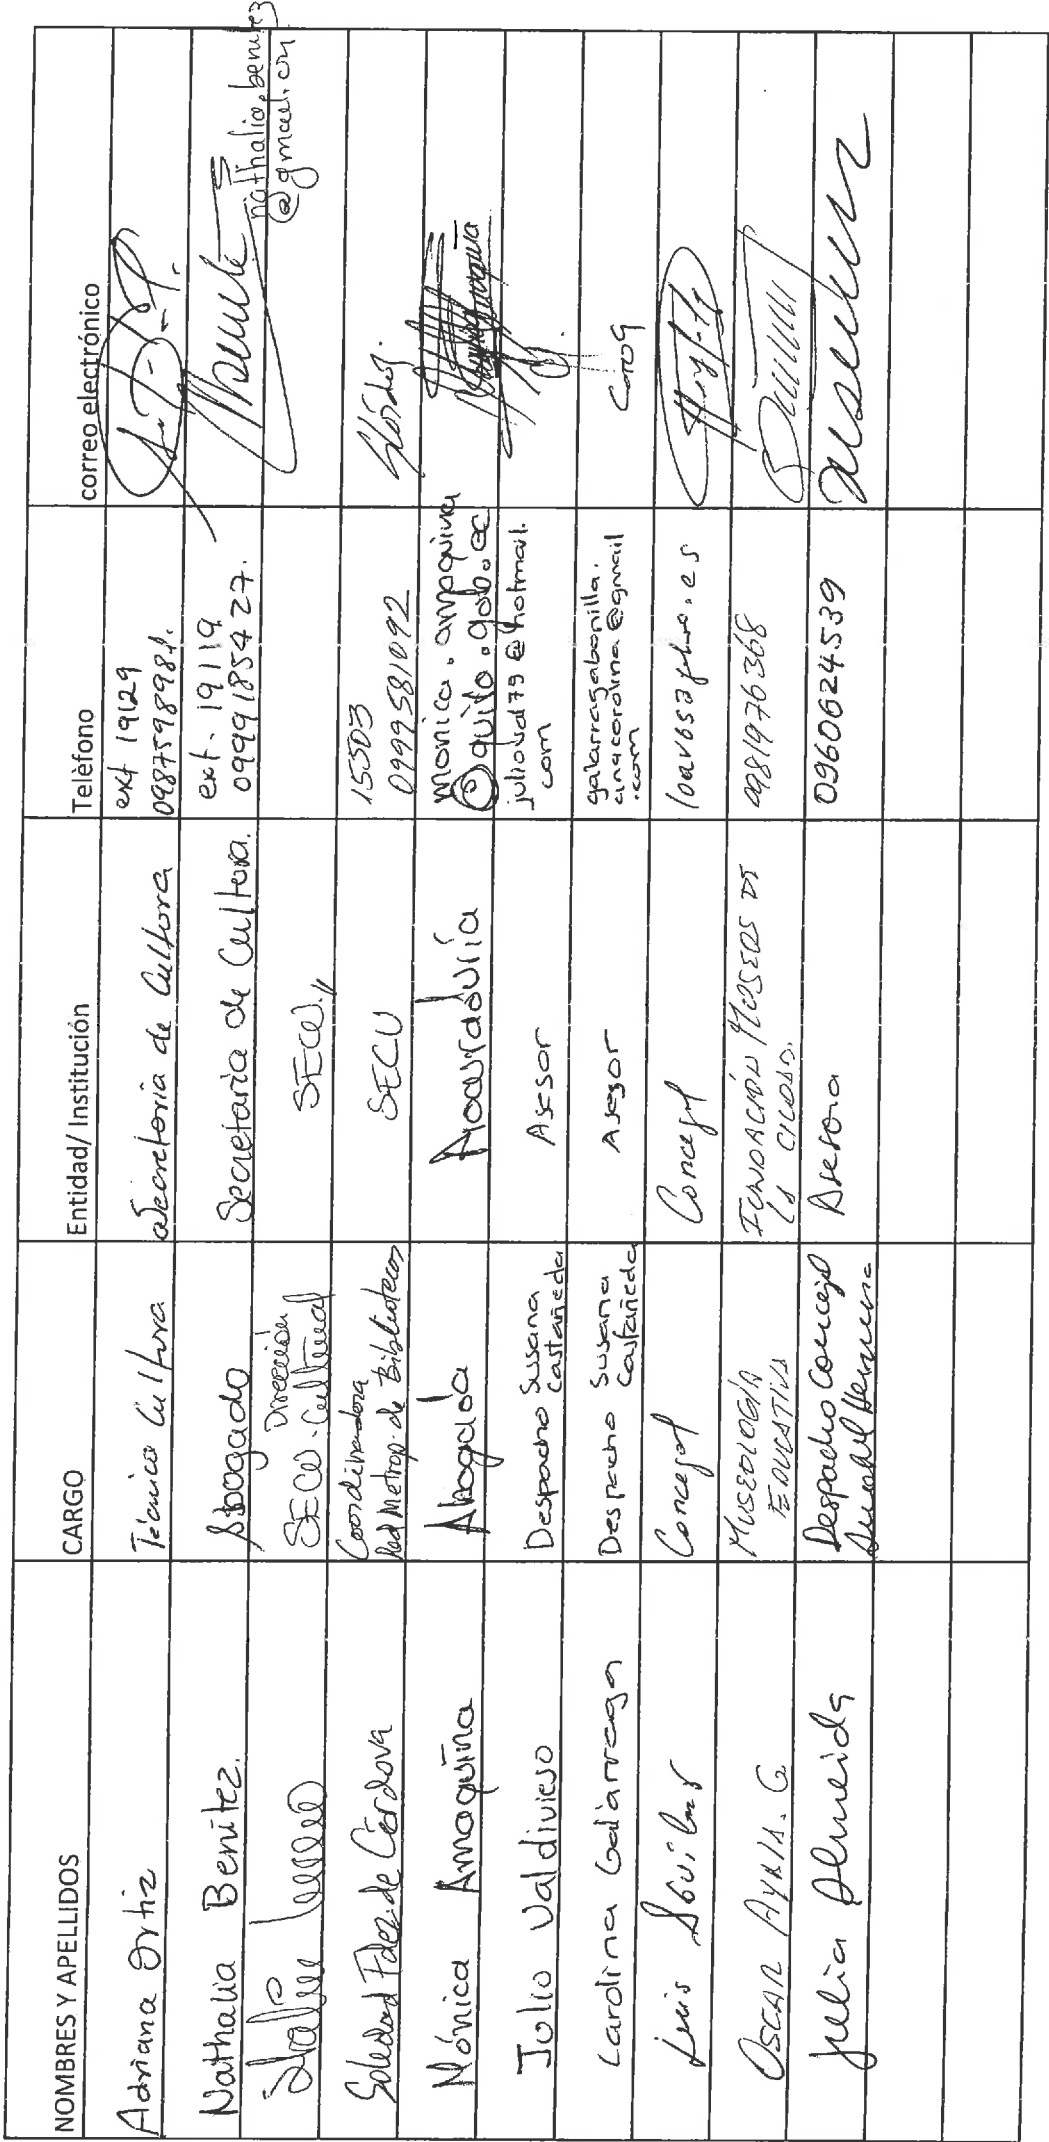 NOMBRES Y APELLIDOS CARGO Entidad/ Institución Teléfono correo electrónico
Adriana Ortiz Técnica Cultura Secretaria de Cultura ext 19129
0987598981.
Nathalia Benítez. Abogado Secretaría de Cultura. ext. 19119
0999185427.
nathalia.benitez
@gmail.com
Dirección
SECU. Cultural SECU.,,
Soledad Fdez. de Córdova Coordinadora
Red Metrop. de Bibliotecas SECU 15503
0999581092
Mónica Amaquiña Abogada Procuraduría monica.amaquina
@quito.gob.ec
Julio Valdivieso Despacho Susana
Castañeda Asesor juliovd79@hotmail.
com
Carolina Galárraga Despacho Susana
Castañeda Asesor galarragabonilla.
anacarolina@gmail
.com Carog
Luis Concejal Concejal
Oscar Ayala. G Museología
Educativa Fundación Museos de
la Ciudad. 0981976368
Julia Almeida Despacho Concejal Asesora 0960624539